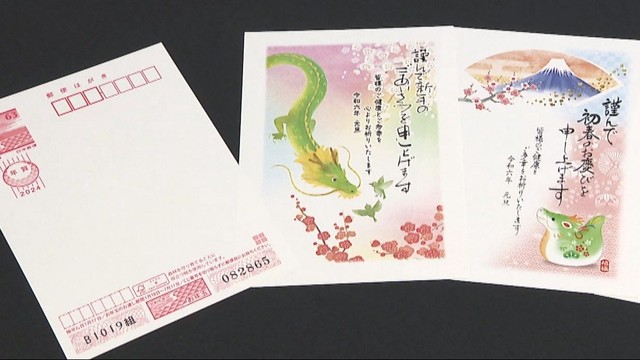 郵便はがき
63
年賀
2024
082865
B1019組
謹んで新年の
ごあいさつを申し上げます
皆様のご健康とご多幸を
心よりお祈りいたします
令和六年 元旦
謹んで
初春のお慶びを
申し上げます
皆様のご健康と
ご多幸をお祈りいたします
令和六年 元旦